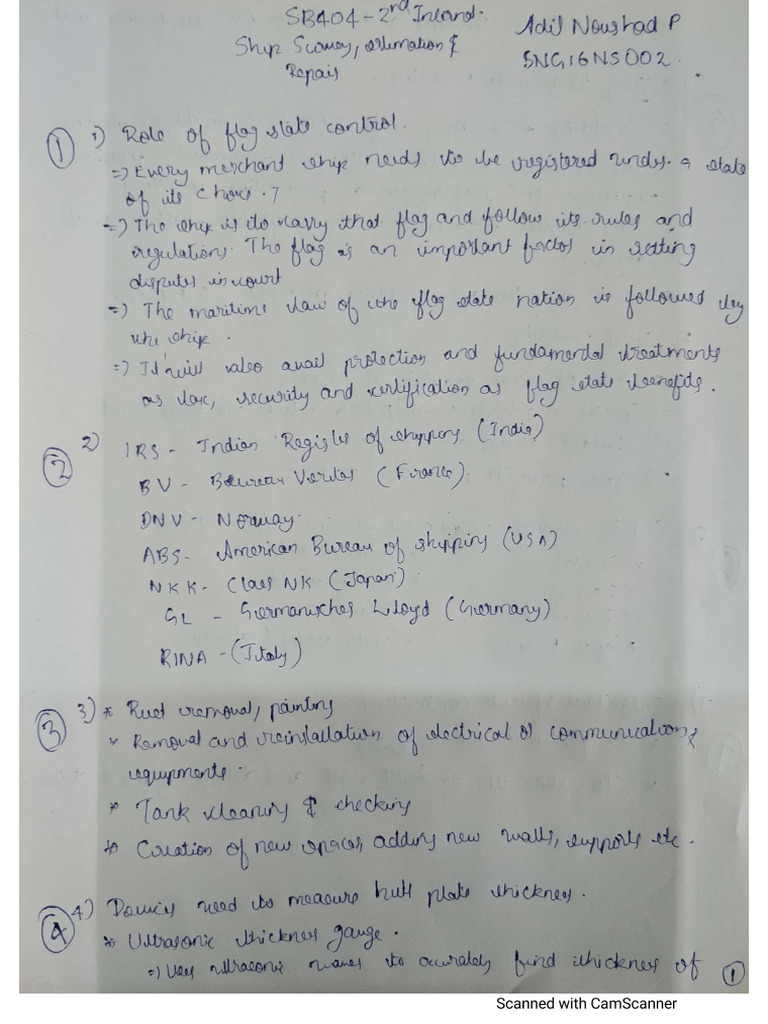 SB404 - 2nd Internal.
Adil Noushad P
Ship Survey, estimation &
SNG16NS002
Repair
① 1) Role of flag state control.
=> Every merchant ship needs to be registered under a state
of its choice.
=> The ship is to carry that flag and follow its rules and
regulations. The flag is an important factor in setting
disputes in court
=> The maritime law of the flag state nation is followed by
the ship.
=> It will also avail protection and fundamental treatments
as tax, security and certification as flag state benefits.
② 2) IRS - Indian Register of shipping (India)
BV - Beureau Veritas (France)
DNV - Norway.
ABS - American Bureau of shipping (USA)
NKK - Class NK (Japan)
GL - Germanisches Lloyd (Germany)
RINA - (Italy)
③ 3) * Rust removal, painting
* Removal and reinstallation of electrical or communication
equipments.
* Tank cleaning & checking
* Creation of new spaces, adding new walls, supports etc.
④ 4) Devices need to measure hull plate thickness.
* Ultrasonic thickness gauge.
=> Uses ultrasonic waves to accurately find thickness of ①
Scanned with CamScanner